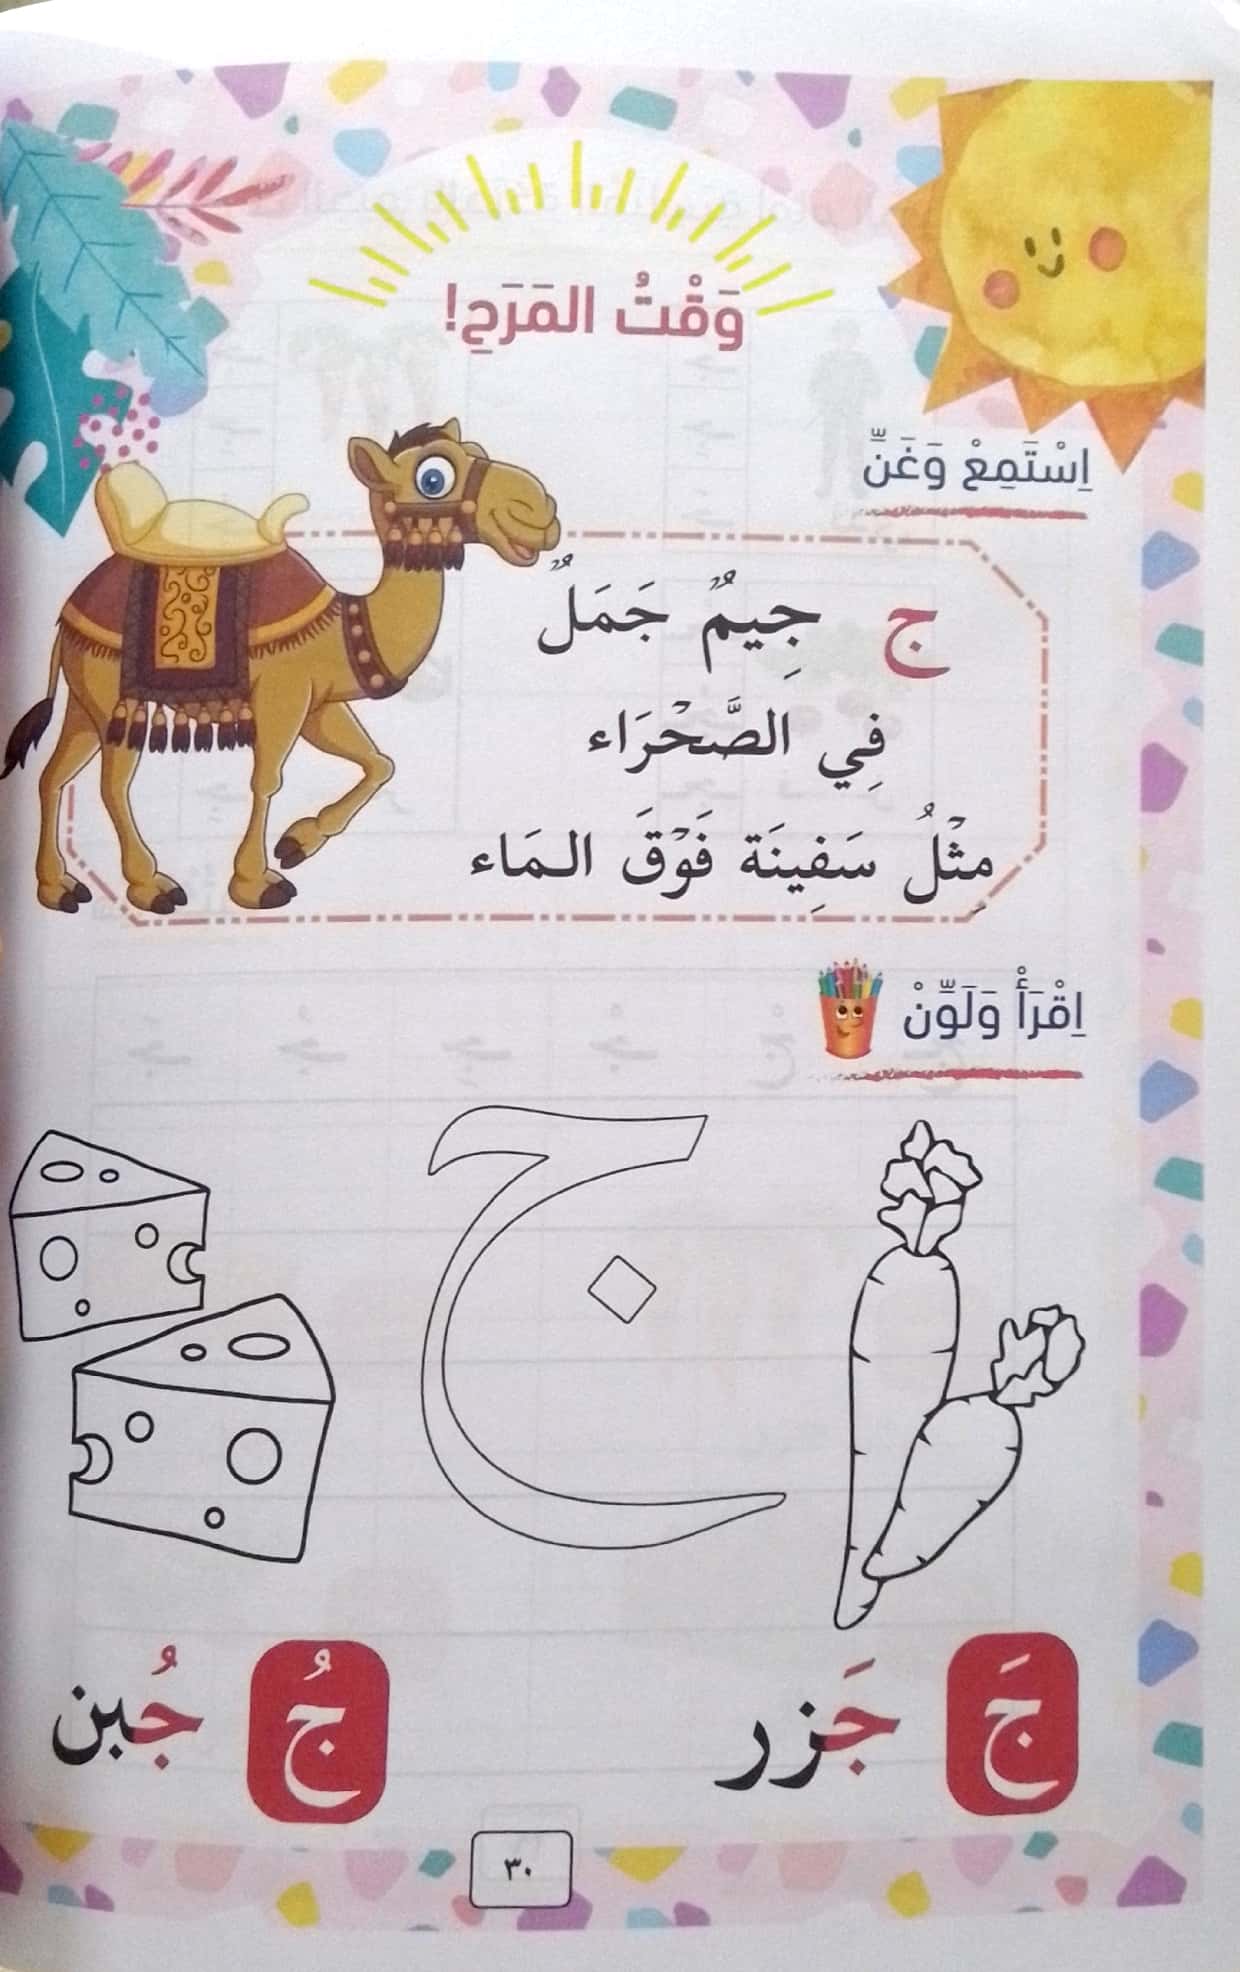 وَقْتُ المَرَحِ!
اِسْتَمِعْ وَغَنِّ
ج جِيمٌ جَمَلٌ
فِي الصَّحْرَاء
مِثْلُ سَفِينَة فَوْقَ الـمَاء
اِقْرَأْ وَلَوِّنْ
ج
جَ جَزر
جُ جُبن
٣٠